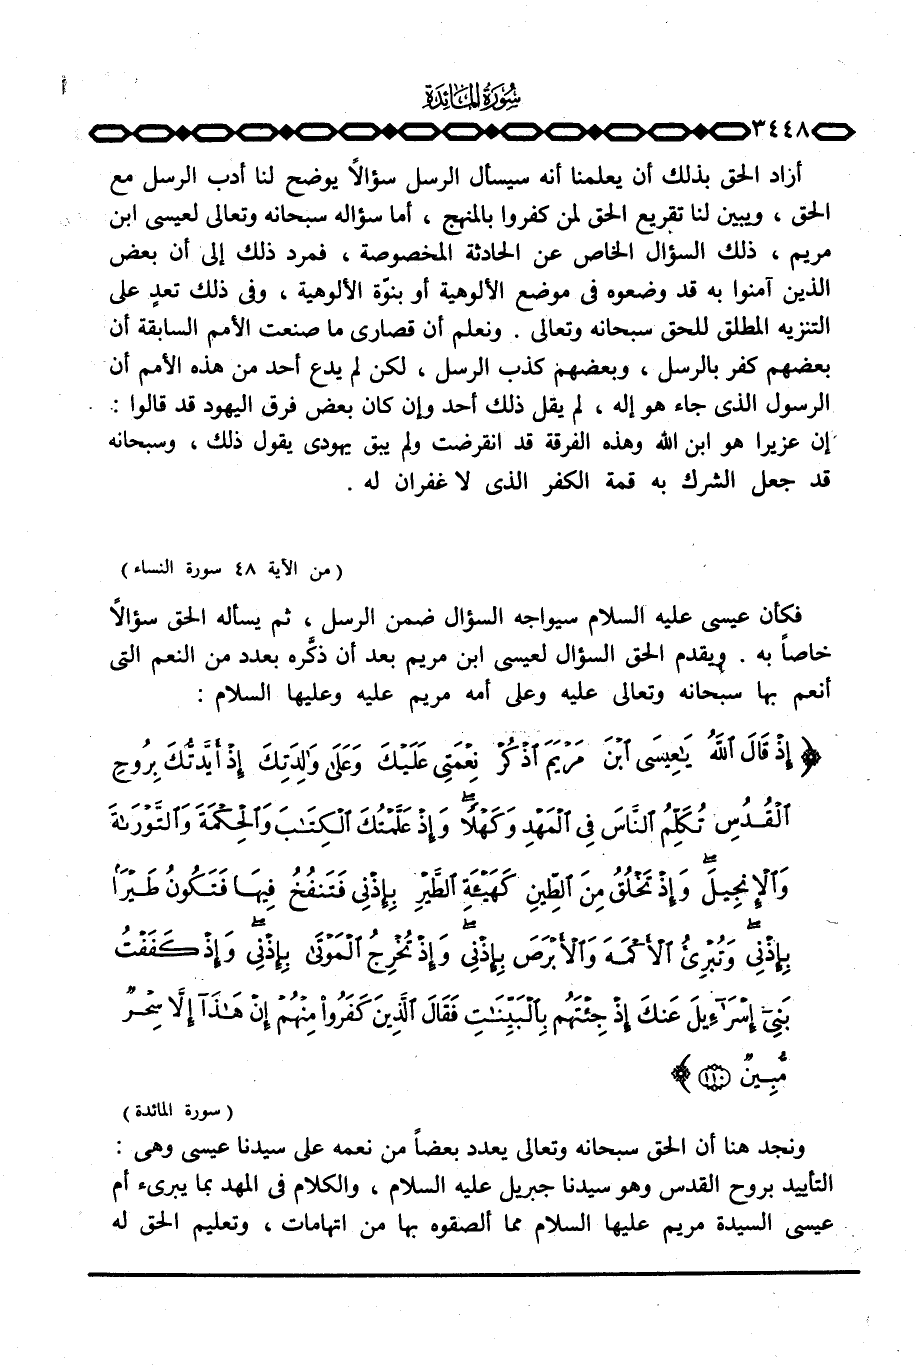 سُورَةُ المَائِدَة
٣٤٤٨
أراد الحق بذلك أن يعلمنا أنه سيسأل الرسل سؤالاً يوضح لنا أدب الرسل مع
الحق ، ويبين لنا تقريع الحق لمن كفروا بالمنهج ، أما سؤاله سبحانه وتعالى لعيسى ابن
مريم ، ذلك السؤال الخاص عن الحادثة المخصوصة ، فمرد ذلك إلى أن بعض
الذين آمنوا به قد وضعوه فى موضع الألوهية أو بنوّة الألوهية ، وفى ذلك تعدٍ على
التنزيه المطلق للحق سبحانه وتعالى . ونعلم أن قصارى ما صنعت الأمم السابقة أن
بعضهم كفر بالرسل ، وبعضهم كذب الرسل ، لكن لم يدع أحد من هذه الأمم أن
الرسول الذى جاء هو إله ، لم يقل ذلك أحد وإن كان بعض فرق اليهود قد قالوا :
إن عزيرا هو ابن الله وهذه الفرقة قد انقرضت ولم يبق يهودى يقول ذلك ، وسبحانه
قد جعل الشرك به قمة الكفر الذى لا غفران له .
( من الآية ٤٨ سورة النساء )
فكأن عيسى عليه السلام سيواجه السؤال ضمن الرسل ، ثم يسأله الحق سؤالاً
خاصاً به . ويقدم الحق السؤال لعيسى ابن مريم بعد أن ذكَّره بعدد من النعم التى
أنعم بها سبحانه وتعالى عليه وعلى أمه مريم عليه وعليها السلام :
﴿ إِذْ قَالَ ٱللَّهُ يَٰعِيسَى ٱبْنَ مَرْيَمَ ٱذْكُرْ نِعْمَتِى عَلَيْكَ وَعَلَىٰ وَٰلِدَتِكَ إِذْ أَيَّدتُّكَ بِرُوحِ
ٱلْقُدُسِ تُكَلِّمُ ٱلنَّاسَ فِى ٱلْمَهْدِ وَكَهْلًا ۖ وَإِذْ عَلَّمْتُكَ ٱلْكِتَٰبَ وَٱلْحِكْمَةَ وَٱلتَّوْرَىٰةَ
وَٱلْإِنجِيلَ ۖ وَإِذْ تَخْلُقُ مِنَ ٱلطِّينِ كَهَيْـَٔةِ ٱلطَّيْرِ بِإِذْنِى فَتَنفُخُ فِيهَا فَتَكُونُ طَيْرًۢا
بِإِذْنِى ۖ وَتُبْرِئُ ٱلْأَكْمَهَ وَٱلْأَبْرَصَ بِإِذْنِى ۖ وَإِذْ تُخْرِجُ ٱلْمَوْتَىٰ بِإِذْنِى ۖ وَإِذْ كَفَفْتُ
بَنِىٓ إِسْرَٰٓءِيلَ عَنكَ إِذْ جِئْتَهُم بِٱلْبَيِّنَٰتِ فَقَالَ ٱلَّذِينَ كَفَرُوا۟ مِنْهُمْ إِنْ هَٰذَآ إِلَّا سِحْرٌ
مُّبِينٌ ١١٠ ﴾
( سورة المائدة )
ونجد هنا أن الحق سبحانه وتعالى يعدد بعضاً من نعمه على سيدنا عيسى وهى :
التأييد بروح القدس وهو سيدنا جبريل عليه السلام ، والكلام فى المهد بما يبرىء أم
عيسى السيدة مريم عليها السلام مما ألصقوه بها من اتهامات ، وتعليم الحق له